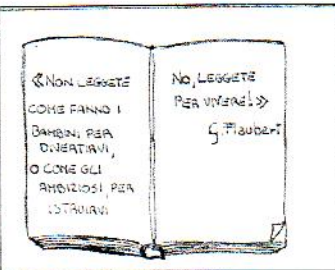 «NON LEGGETE
COME FANNO I
BAMBINI PER
DIVERTIRVI,
O COME GLI
AMBIZIOSI PER
ISTRUIRVI
NO, LEGGETE
PER VIVERE!»
G. Flaubert